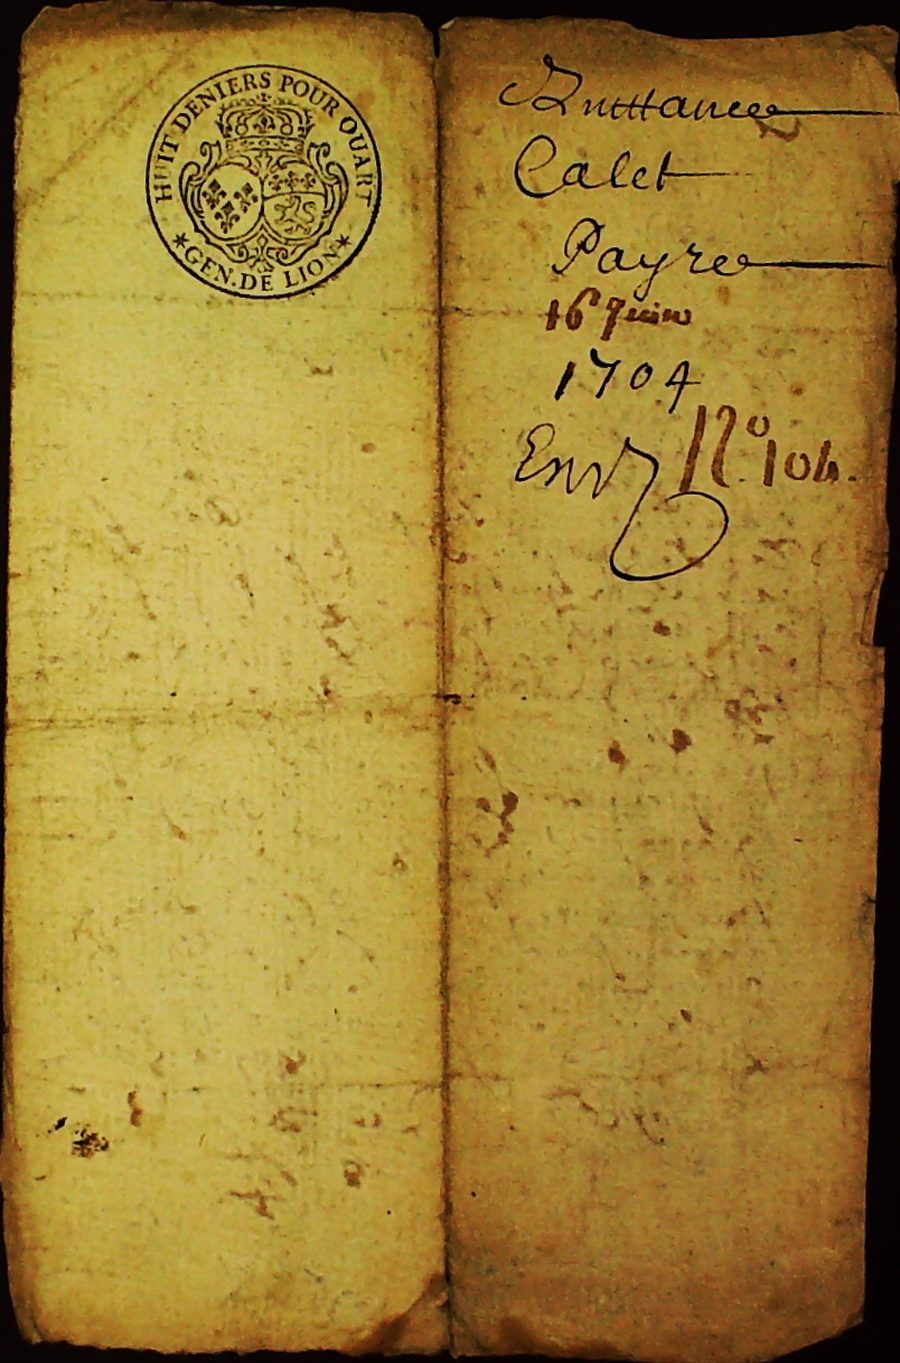 HUIT DENIERS POUR QUART
*GEN. DE LION*
Quittance
Calet
Payre
16 Juin
1704
No. 104.